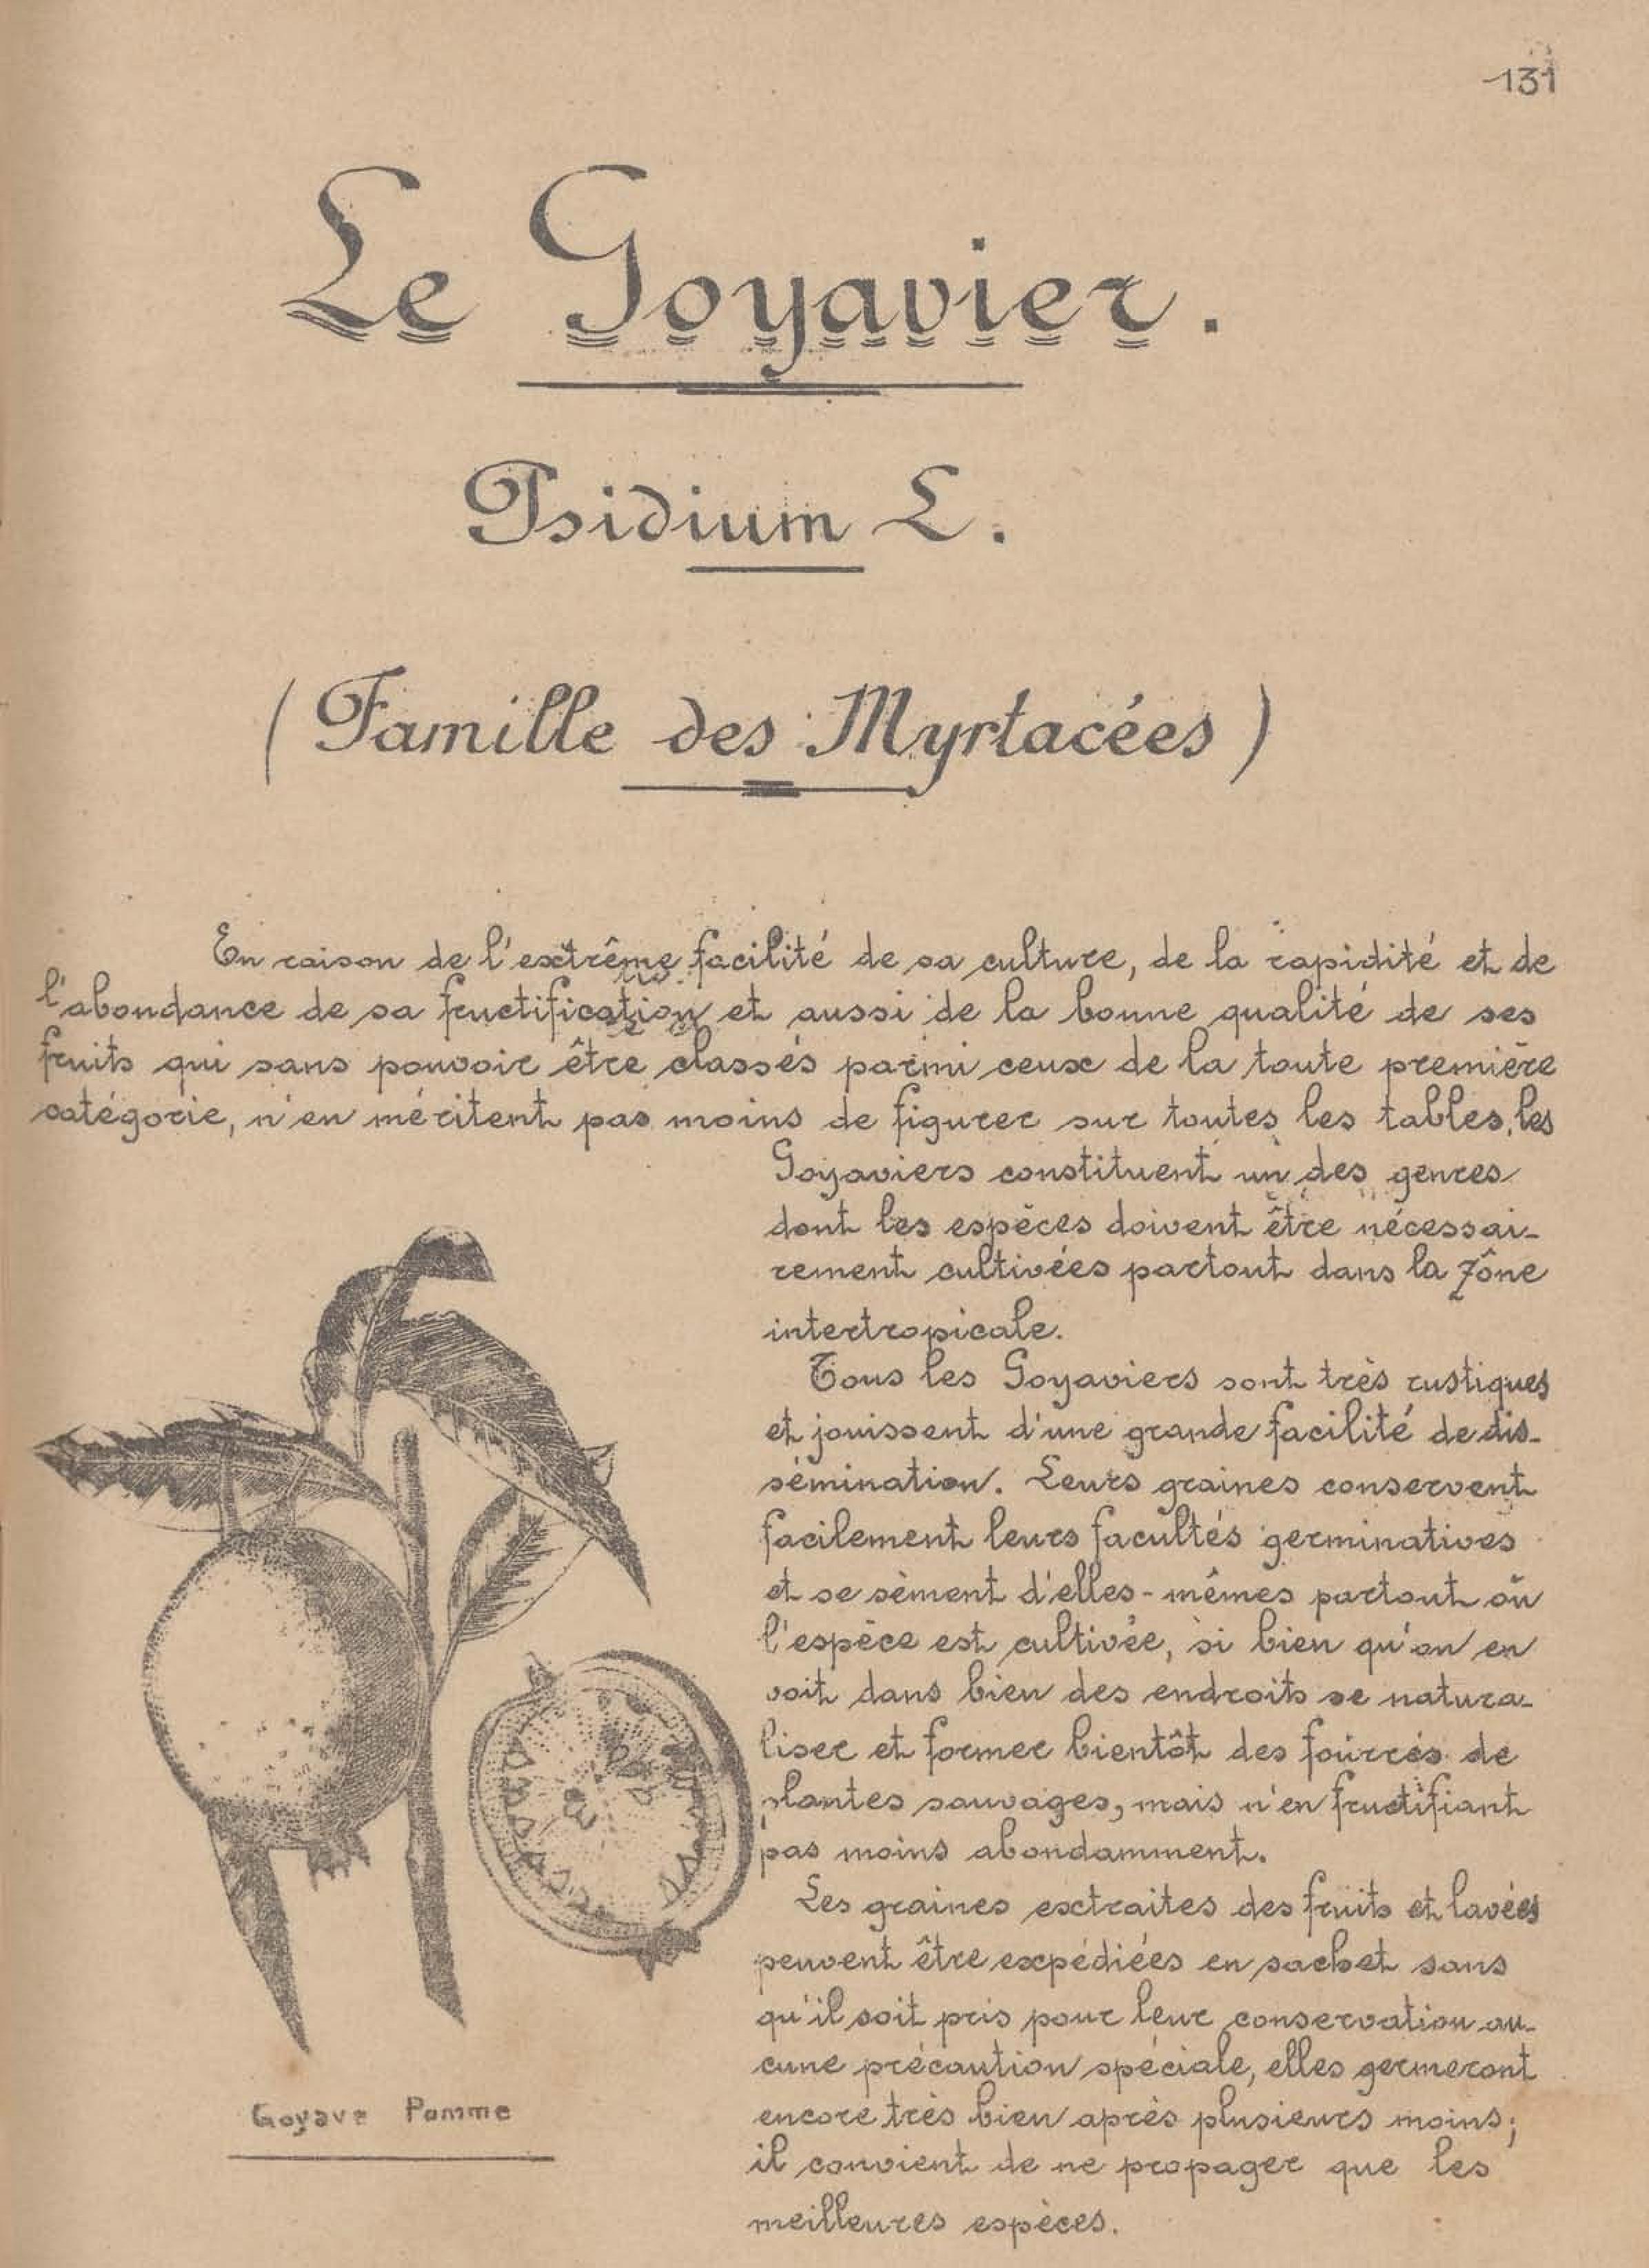 131
Le Goyavier.
Psidium L.
(Famille des Myrtacées)
En raison de l'extrême facilité de sa culture, de la rapidité et de
l'abondance de sa fructification et aussi de la bonne qualité de ses
fruits qui sans pouvoir être classés parmi ceux de la toute première
catégorie, n'en méritent pas moins de figurer sur toutes les tables, les
Goyaviers constituent un des genres
dont les espèces doivent être nécessai-
rement cultivées partout dans la zône
intertropicale.
Tous les Goyaviers sont très rustiques
et jouissent d'une grande facilité de dis-
sémination. Leurs graines conservent
facilement leurs facultés germinatives
et se sèment d'elles-mêmes partout où
l'espèce est cultivée, si bien qu'on en
voit dans bien des endroits se natura-
liser et former bientôt des fourrés de
plantes sauvages, mais n'en fructifiant
pas moins abondamment.
Les graines extraites des fruits et lavées
peuvent être expédiées en sachet sans
qu'il soit pris pour leur conservation au-
cune précaution spéciale, elles germeront
encore très bien après plusieurs moins;
il convient de ne propager que les
meilleures espèces.
Goyave Pomme